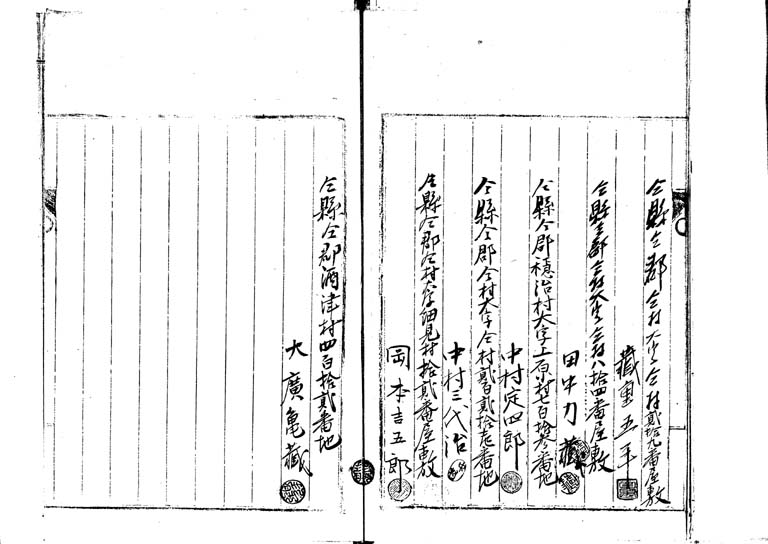 仝縣仝郡仝村大字仝村貳拾九番屋敷
藏重五平
仝縣仝郡仝村大字仝村八拾四番屋敷
田中刀藏
仝縣仝郡穂治村大字上原村七百拾番地
中村定四郎
仝縣仝郡仝村大字仝村貳百貳拾壱番地
中村三代治
仝縣仝郡仝村大字細見村拾貳番屋敷
岡本吉五郎
仝縣仝郡酒津村四百拾貳番地
大廣亀藏